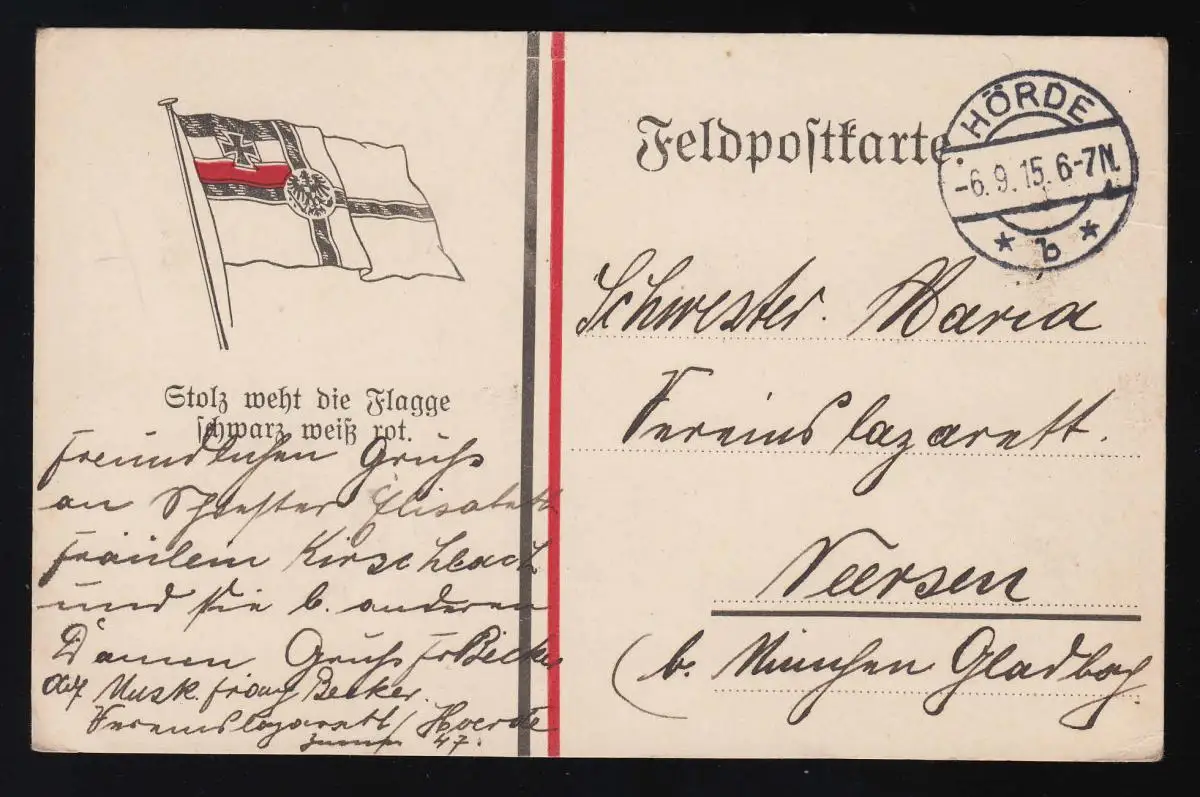 Stolz weht die Flagge
schwarz weiß rot.
Freundlichen Gruß
an Schwester Elisabeth
Fräulein Kirschbach
und die b. anderen
Damen Gruß Fr Becker
Musk. Franz Becker.
Vereinslazarett / Hoerde
47.
Feldpostkarte.
HÖRDE
-6.9.15.6-7N.
* b *
Schwester. Maria
Vereinslazarett.
Veersen
(b. München Gladbach